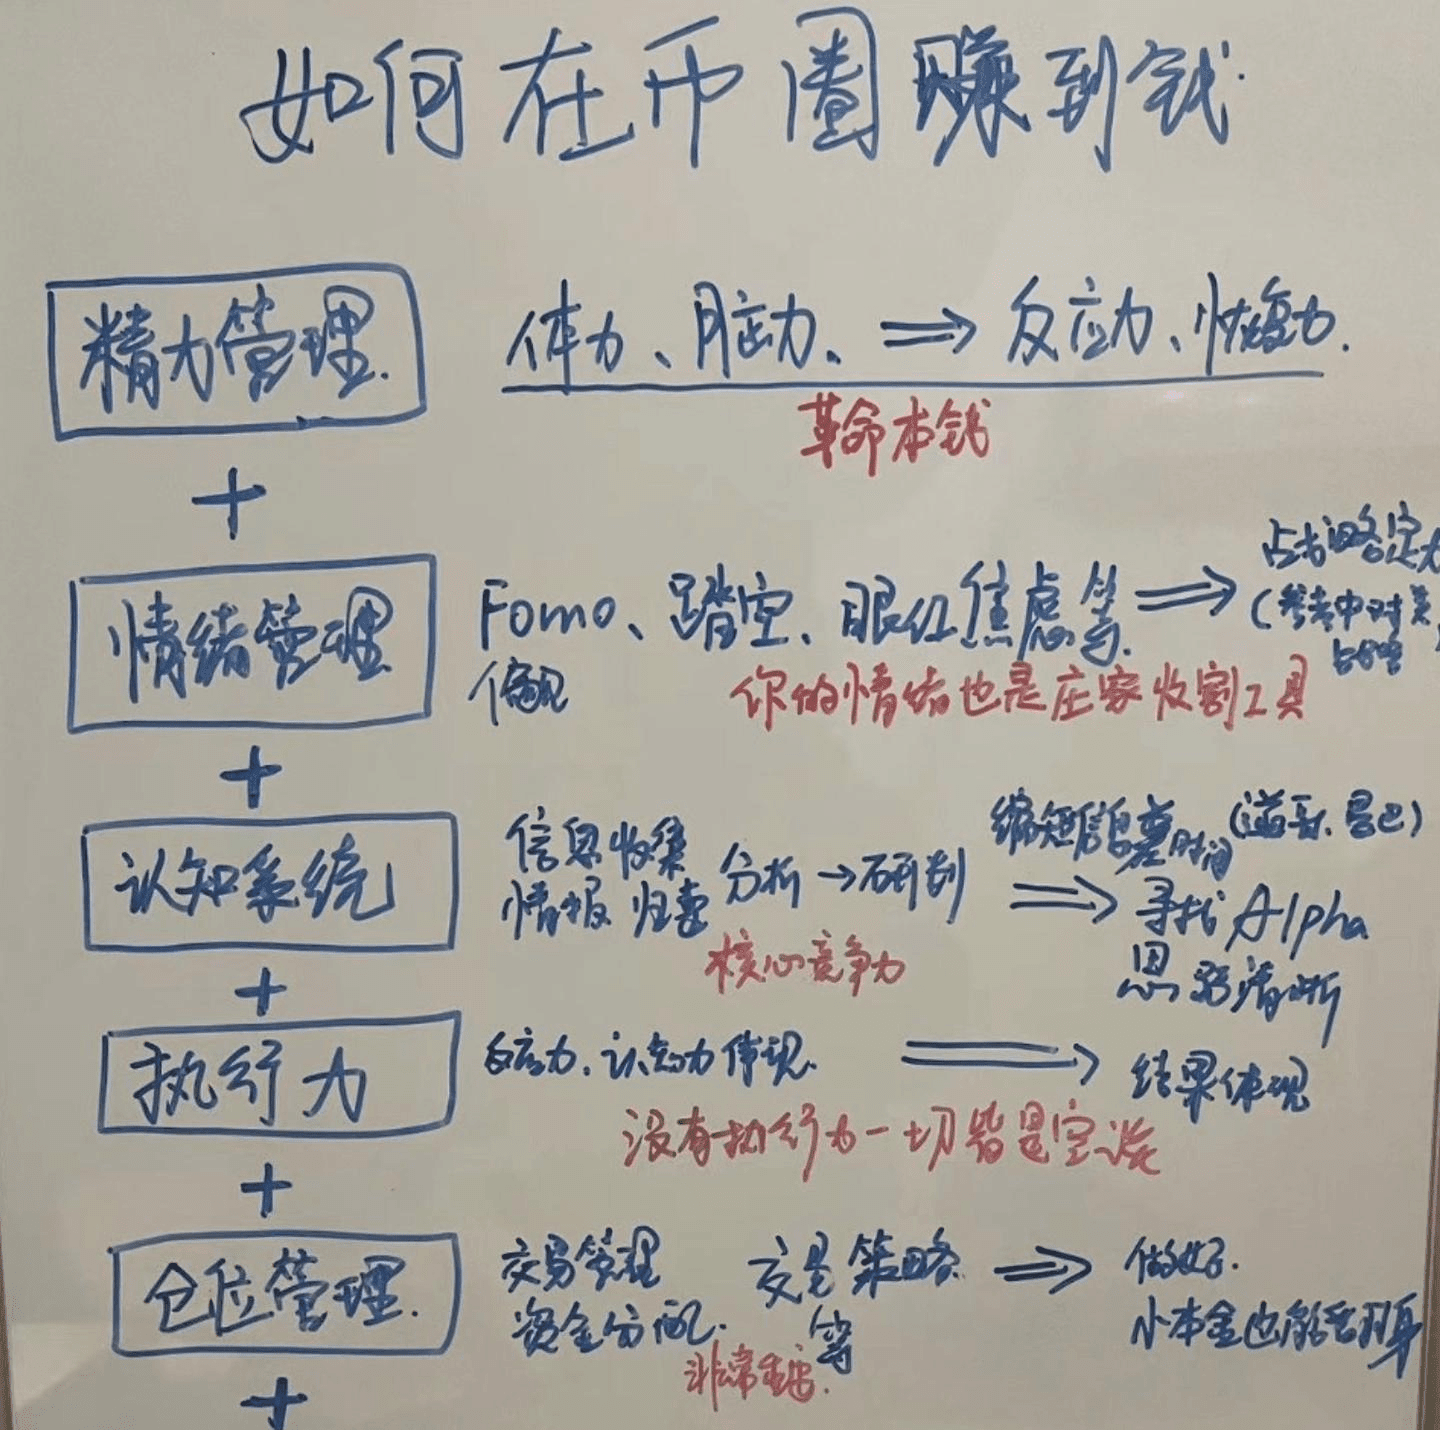 如何在币圈赚到钱.
精力管理. 体力、脑力、⇒ 反应力、恢复力.
革命本钱
+
情绪管理 Fomo、踏空、眼红焦虑等. ⇒ 战略定力
偏见 (参考中对美战略)
你的情绪也是庄家收割工具
+
认知系统 信息收集 分析→研判 ⇒ 缩短信息差时间
情报 归纳 寻找Alpha
核心竞争力 思路清晰
+
执行力 反应力、认知力体现. ⇒ 结果体现
没有执行力一切皆是空谈
+
仓位管理. 交易管理 交易策略 ⇒ 做好.
资金分配. 等 小本金也能活翻身
非常重要.
+